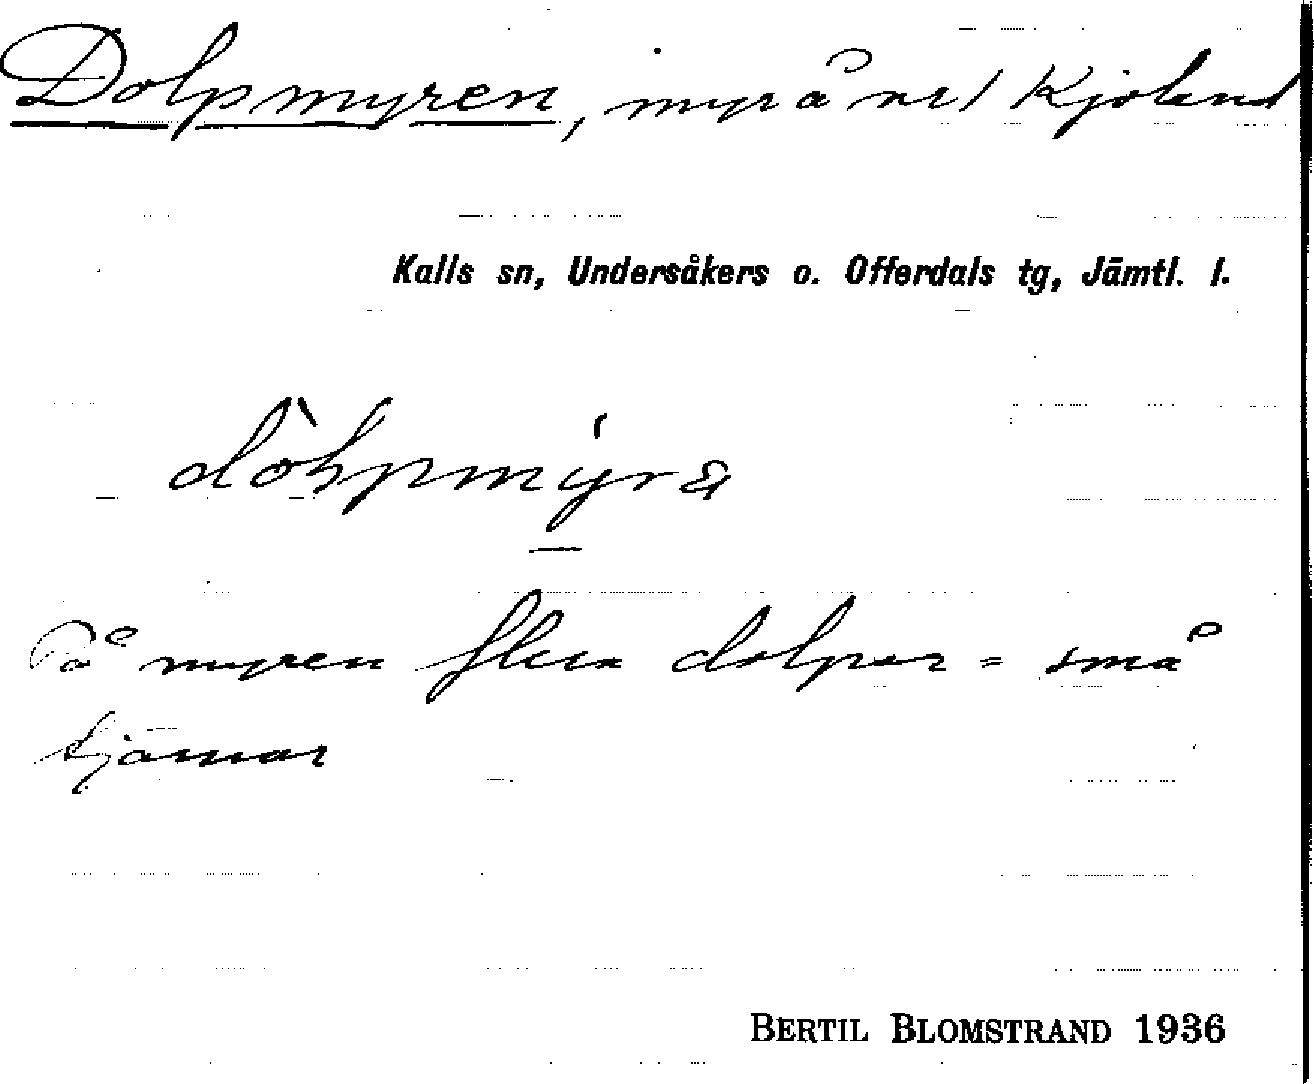 Dolpmyren, myr å nr 1 Kjoland
Kalls sn, Undersåkers o. Offerdals tg, Jämtl. l.
På myren flera dolpar = små
tjärnar
BERTIL BLOMSTRAND 1936